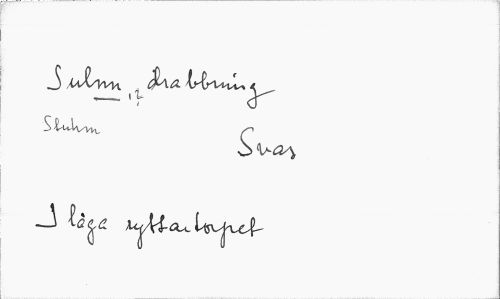 Sulnn,? drabbning
Stuhm
Svar
I låga ryttartorpet